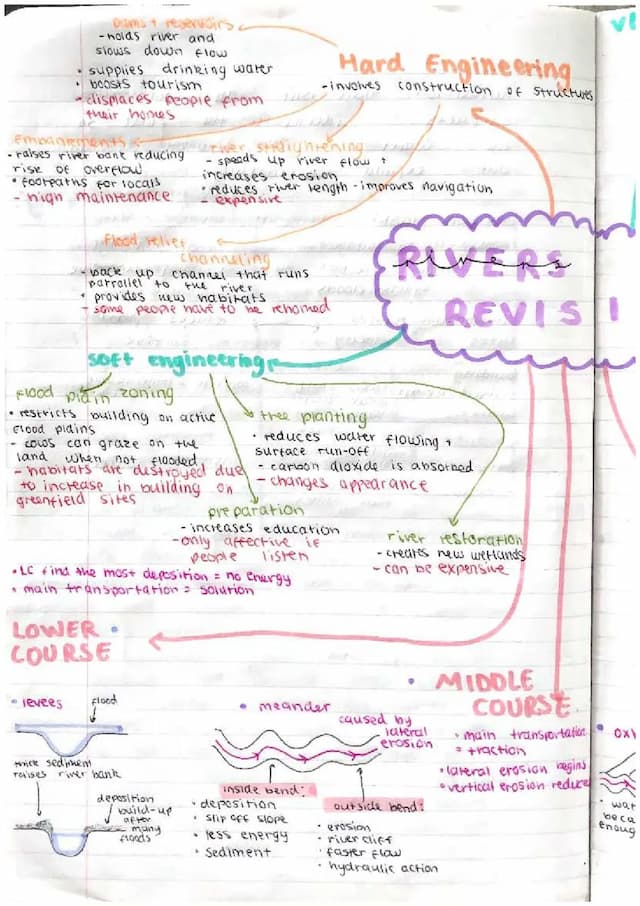 Dams + reservoirs
-holds river and
slows down flow
• supplies drinking water
• boosts tourism
-displaces people from
their homes
Hard Engineering
-involves construction of structures
Embankments
-raises river bank reducing
risk of overflow
• footpaths for locals
- high maintenance
river straightening
- speeds up river flow +
increases erosion
• reduces river length - improves navigation
- expensive
Flood relief
channeling
- back up channel that runs
parrallel to the river
• provides new habitats
- some people have to be rehomed
RIVERS
rivers
REVISI
soft engineering
flood plain zoning
• restricts building on active
flood plains
- cows can graze on the
land when not flooded
- habitats are destroyed due
to increase in building on
greenfield sites
tree planting
• reduces water flowing +
surface run-off
- carbon dioxide is absorbed
- changes appearance
preparation
- increases education
-only affective if
people listen
river restoration
- creates new wetlands
- can be expensive
•LC find the most deposition = no energy
• main transportation = solution
LOWER
COURSE
• levees
flood
thick sediment
raises river bank
deposition
build-up
after
many
floods
• meander
caused by
lateral
erosion
inside bend:
• deposition
• slip off slope
• less energy
• sediment
outside bend:
• erosion
• river cliff
• faster flow
• hydraulic action
• MIDDLE
COURSE
• main transportation
= traction
•lateral erosion begins
•vertical erosion reduce
• wat
beca
enoug